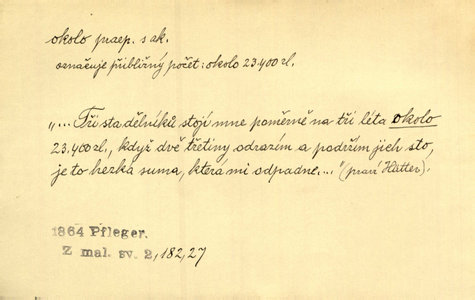 okolo praep. s ak.
označuje přibližný počet: okolo 23.400 zl.
„... Tři sta dělníků stojí mne poměrně na tři léta okolo
23.400 zl., když dvě třetiny odrazím a podržím jich sto,
je to hezká suma, která mi odpadne...." (praví Hütter).
1864 Pfleger.
Z mal. sv. 2, 182, 27